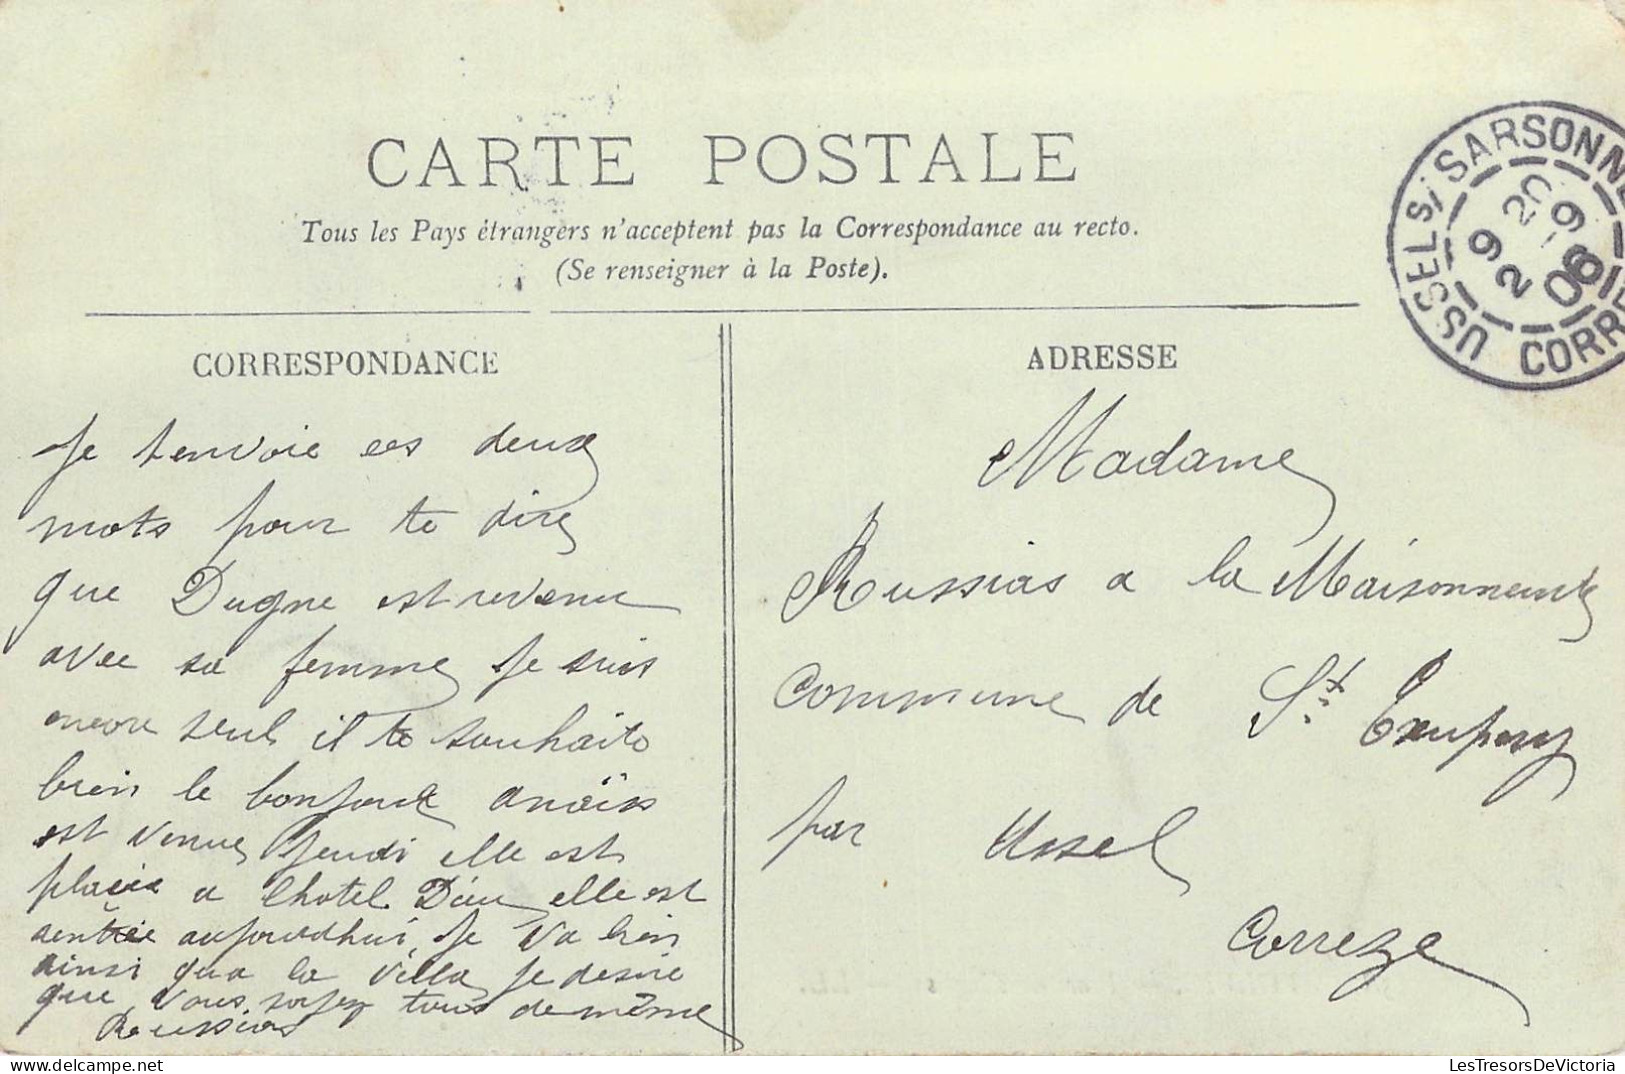 CARTE POSTALE
Tous les Pays étrangers n'acceptent pas la Correspondance au recto.
(Se renseigner à la Poste).
USSEL S/ SARSONNE
20
9 6
2 06
CORRÈZE
CORRESPONDANCE
Je tenvoie ces deux
mots pour te dire
que Dugne est revenu
avec sa femme Je suis
encore seul il te souhaite
bien le bonjour anaïs
est venue Jeudi elle est
placée a lhotel Dieu elle est
rentrée aujourdhui, Je Va bien
ainsi qua la villa Je desire
que vous soyez tous de même
Roussias
ADRESSE
Madame
Russias a la Maisonneuve
Commune de St Exupery
par Ussel
Correze
LesTresorsDeVictoria